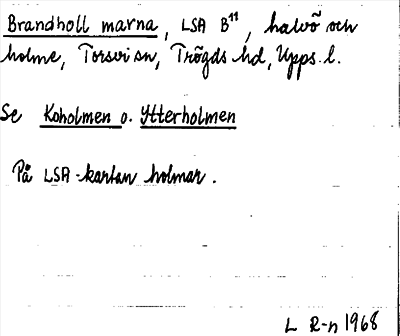 Brandholl marna, LSA B¹¹, halvö och
holme, Torsvi sn, Trögds hd, Upps. l.
Se Koholmen o. Ytterholmen
På LSA-kartan holmar.
L R-n 1968